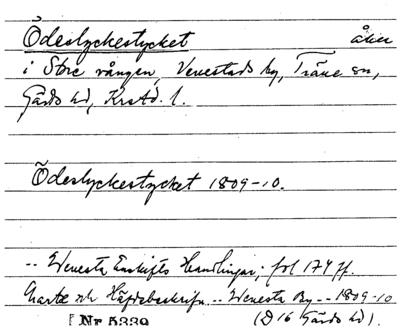 Ödeslyckestycket åker
i Store vången, Venestads by, Träne sn,
Gärds hd, Krstd. l.
Ödeslyckestycket 1809-10.
-- Wenesta Enskifts Handlingar; fol 174 ff.
Charta och Häfdebeskrifn -- Wenesta By -- 1809-10
(D 16 Gärds hd).
[Nr 5339